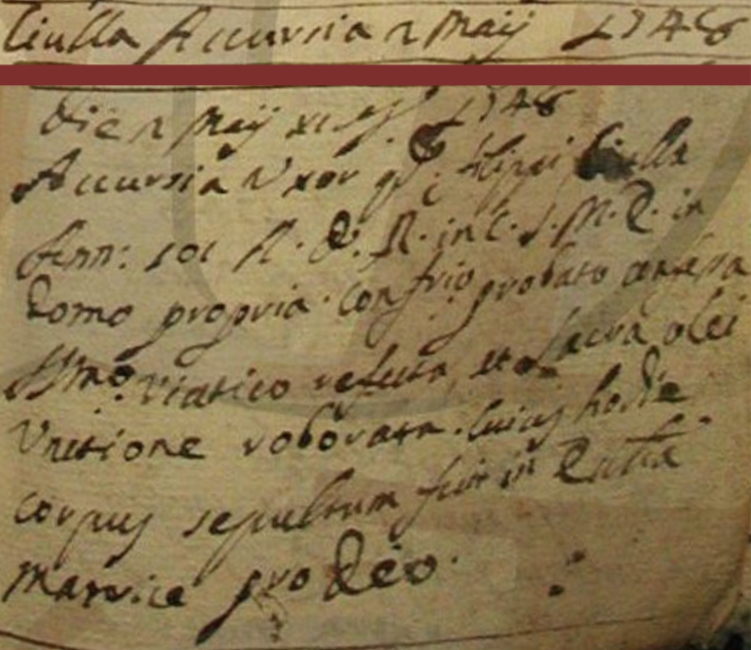 Ciulla Accursia 2 Maij 1748
Die 2 Maij xi 1748
Accursia Uxor qd: Filippi Ciulla
Ann: 101 A. D. R. in C. S. M. E. in
Domo propria. Confrio probato confessa
SSmo. Viatico refecta, et Sacra olei
Unctione roborata. Cuius hodie
corpus sepultum fuit in
Matrice pro Deo.